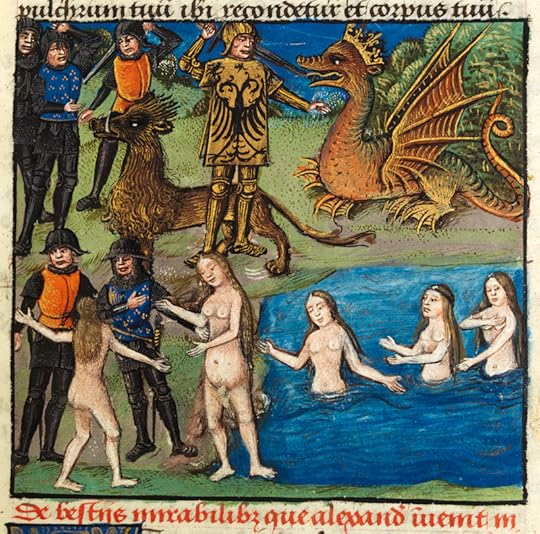 pulchrum tuū ibi recondetur et corpus tuū.
De bestijs mirabilibꝫ que alexand̄ inuenit in